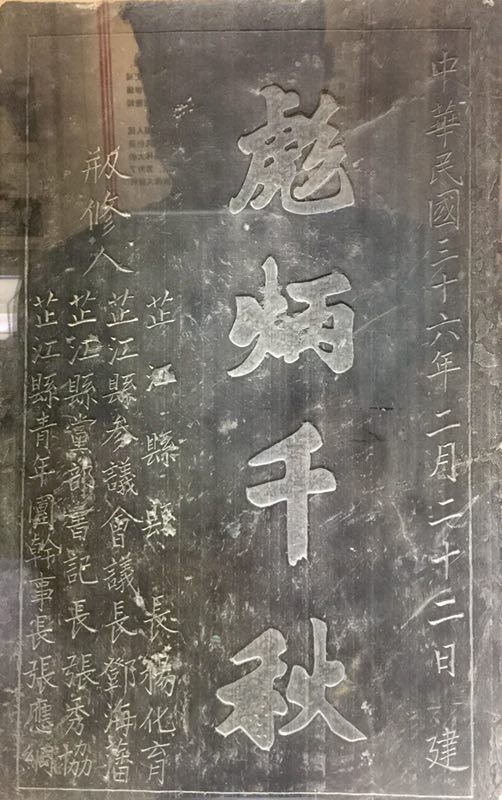 中華民國三十六年二月二十二日建
彪炳千秋
修人
芷江縣縣長楊化育
芷江縣参議會議長鄧海藩
芷江縣黨部書記長張秀協
芷江縣青年團幹事長張應綱